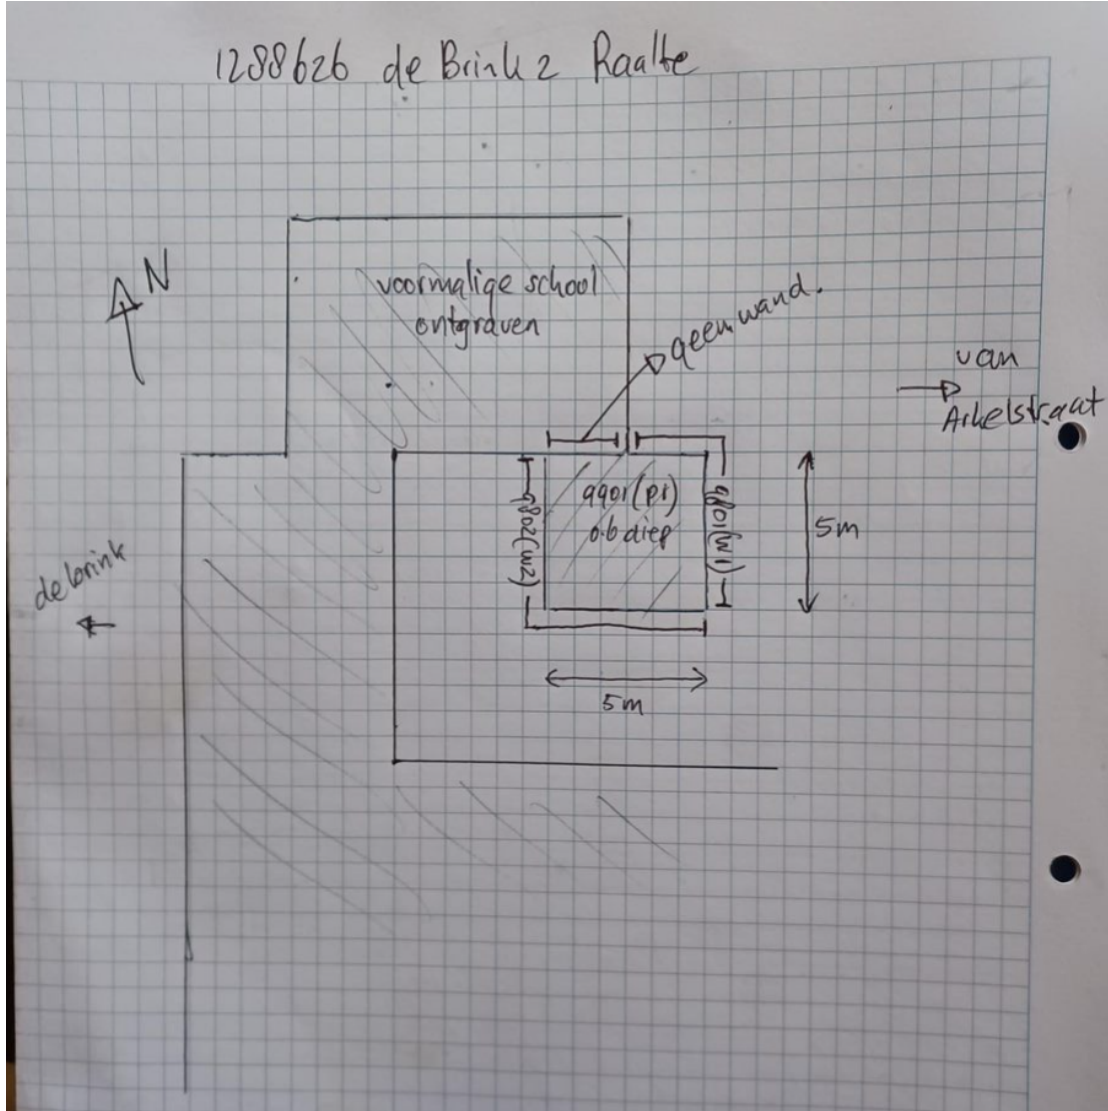 1288626 de Brink 2 Raalte
N
voormalige school
ontgraven
geen wand.
van
Arkelstraat
9901(p1)
0.6 diep
9802(w2)
9801(w1)
5m
de brink
5m